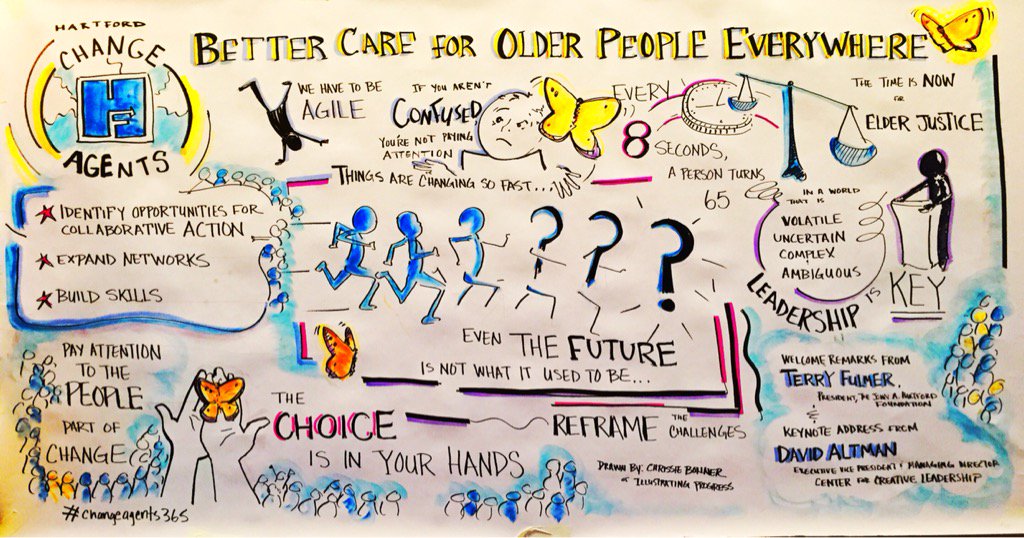 HARTFORD
CHANGE
AGENTS
BETTER CARE FOR OLDER PEOPLE EVERYWHERE
WE HAVE TO BE
AGILE
IF YOU AREN'T
CONFUSED
YOU'RE NOT PAYING
ATTENTION
EVERY
8 SECONDS,
A PERSON TURNS
65
THE TIME IS NOW
FOR
ELDER JUSTICE
THINGS ARE CHANGING SO FAST...
IDENTIFY OPPORTUNITIES FOR
COLLABORATIVE ACTION
EXPAND NETWORKS
BUILD SKILLS
IN A WORLD
THAT IS
VOLATILE
UNCERTAIN
COMPLEX
AMBIGUOUS
LEADERSHIP
IS
KEY
EVEN THE FUTURE
IS NOT WHAT IT USED TO BE...
PAY ATTENTION
TO THE
PEOPLE
PART OF
CHANGE
#changeagents365
THE
CHOICE
IS IN YOUR HANDS
REFRAME THE
CHALLENGES
DRAWN BY: CHRISSIE BONNER
of ILLUSTRATING PROGRESS
WELCOME REMARKS FROM
TERRY FULMER,
PRESIDENT, THE JOHN A. HARTFORD
FOUNDATION
&
KEYNOTE ADDRESS FROM
DAVID ALTMAN
EXECUTIVE VICE PRESIDENT & MANAGING DIRECTOR
CENTER FOR CREATIVE LEADERSHIP